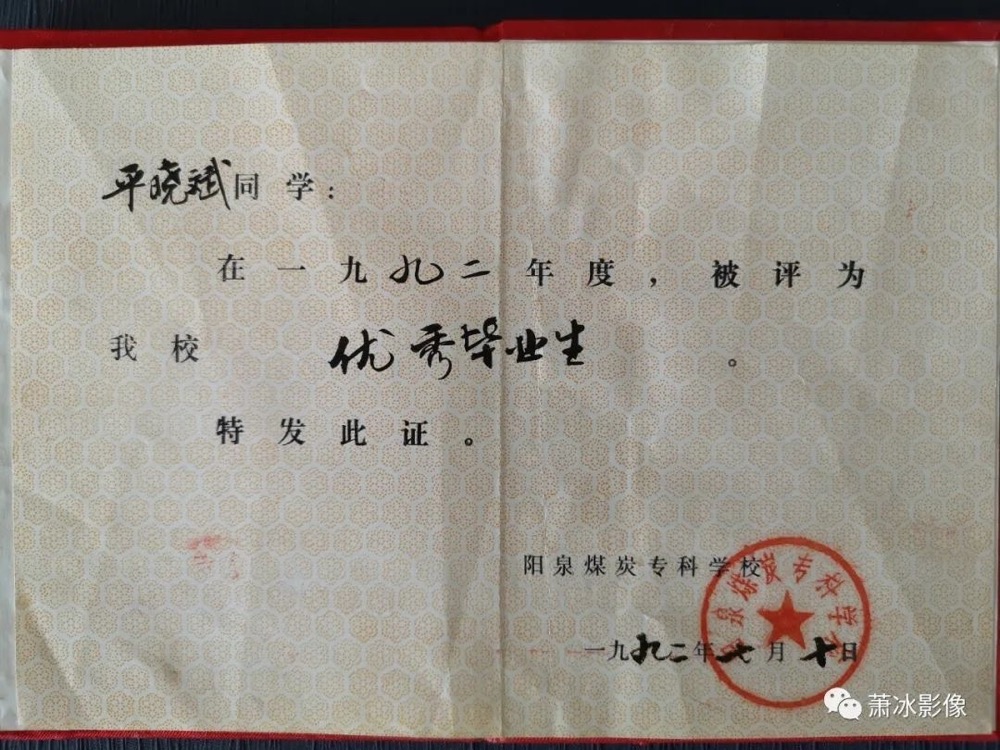 平晓斌同学：
在一九九二年度，被评为
我校优秀毕业生。
特发此证。
阳泉煤炭专科学校
一九九二年七月十日
阳泉煤炭专科学校
萧冰影像